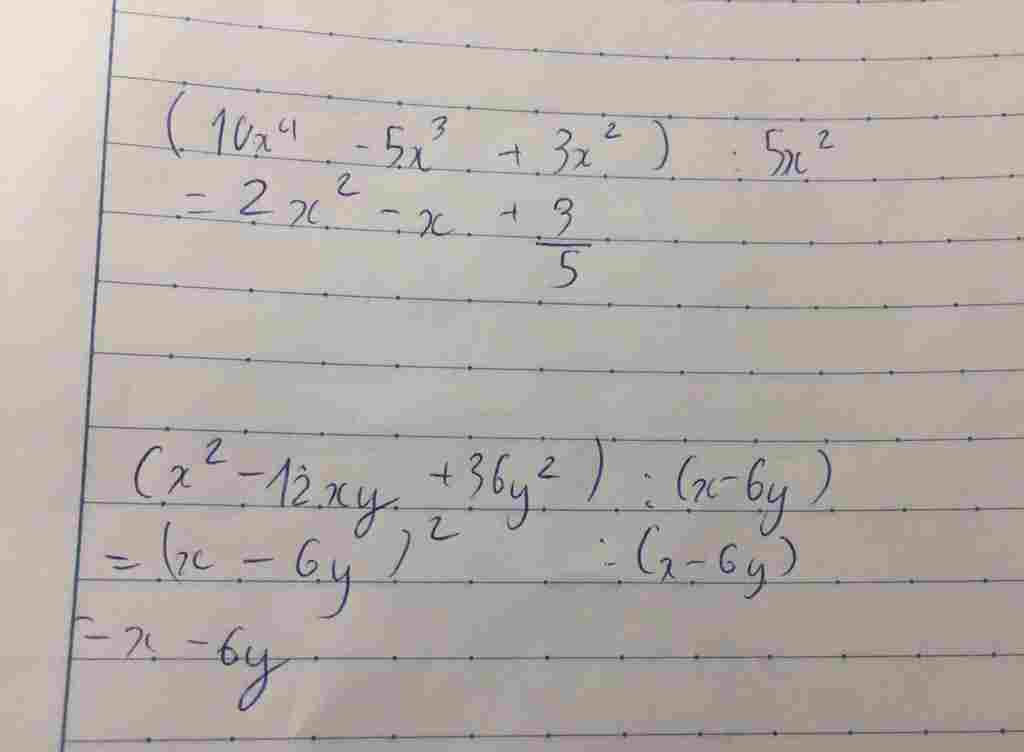 (10x⁴ - 5x³ + 3x²) : 5x²
= 2x² - x + 3/5
(x² - 12xy + 36y²) : (x - 6y)
= (x - 6y)² : (x - 6y)
= x - 6y